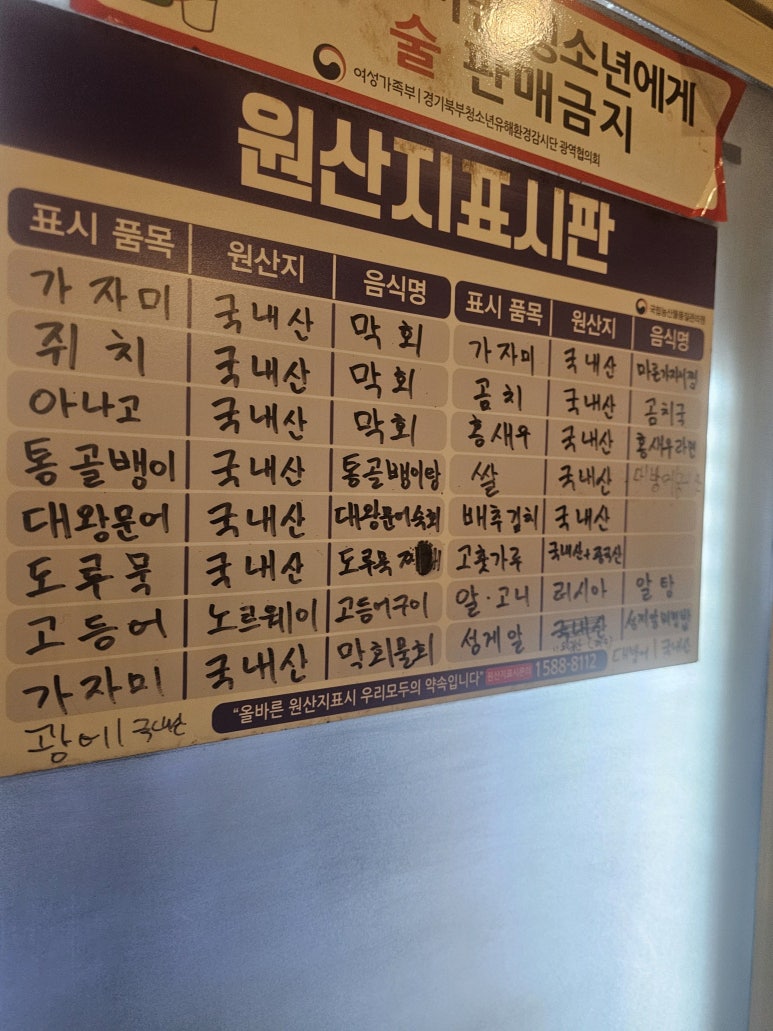 청소년에게
술 판매금지
여성가족부 | 경기북부청소년유해환경감시단 광역협의회
원산지표시판
국립농산물품질관리원
표시 품목 원산지 음식명
가자미 국내산 막회
쥐치 국내산 막회
아나고 국내산 막회
통골뱅이 국내산 통골뱅이탕
대왕문어 국내산 대왕문어숙회
도루묵 국내산 도루묵
고등어 노르웨이 고등어구이
가자미 국내산 막회물회
광어 국내산
표시 품목 원산지 음식명
가자미 국내산 마른가자미찜
곰치 국내산 곰치국
홍새우 국내산 홍새우라면
쌀 국내산
배추김치 국내산
고춧가루 국내산+중국산
알·고니 러시아 알탕
성게알 국내산
국내산
"올바른 원산지표시 우리모두의 약속입니다" 원산지표시문의 1588-8112